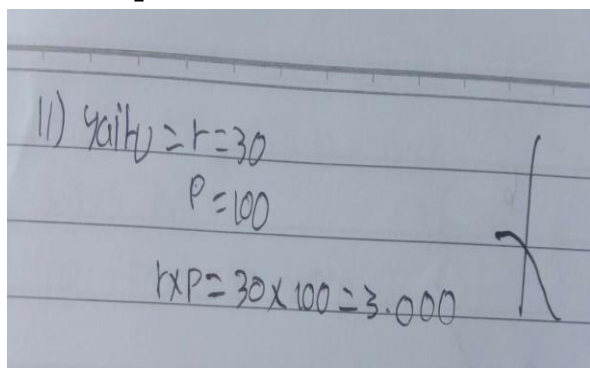 11) yaitu = r = 30
P = 100
r x P = 30 x 100 = 3.000